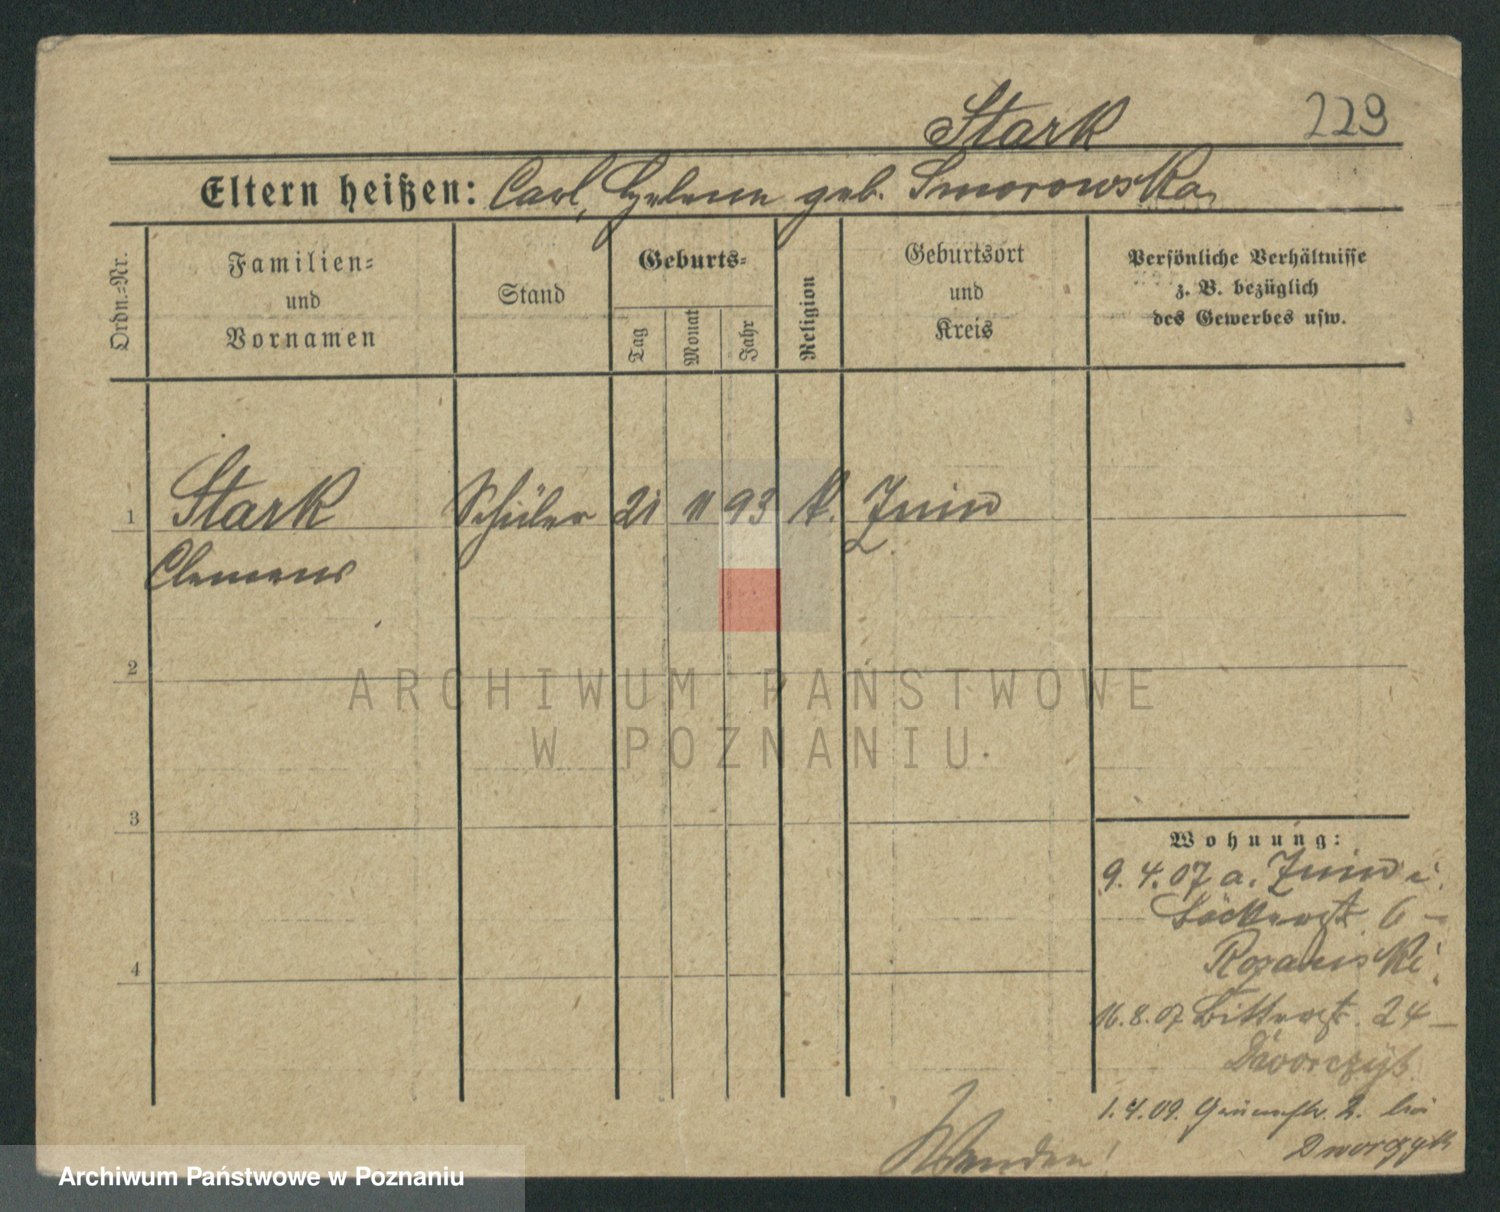 Stark 229
Eltern heißen: Carl, Helene geb. Smorowska
Ordn.-Nr.
Familien-
und
Vornamen
Stand
Geburts-
Tag
Monat
Jahr
Religion
Geburtsort
und
Kreis
Persönliche Verhältnisse
z. B. bezüglich
des Gewerbes usw.
1 Stark Schüler 21 11 93 k. Znin
Clemens Z.
2
ARCHIWUM PAŃSTWOWE
W POZNANIU
3
Wohnung:
9. 4. 07 a. Znin i.
Bäckerstr. 6 –
4
16. 8. 07 Ritterstr. 24 –
Dworczyk
1. 4. 09. 2. bei
Dworczyk
Wenden!
Archiwum Państwowe w Poznaniu